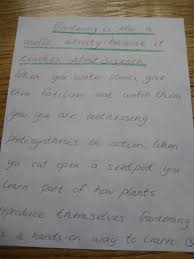 Gardening is also a
useful activity because it
teaches about science
When you water plants, give
them fertiliser and watch them
grow you are witnessing
photosynthesis in action. When
you cut open a seedpod you
learn part of how plants
reproduce themselves Gardening
is a hands-on way to learn